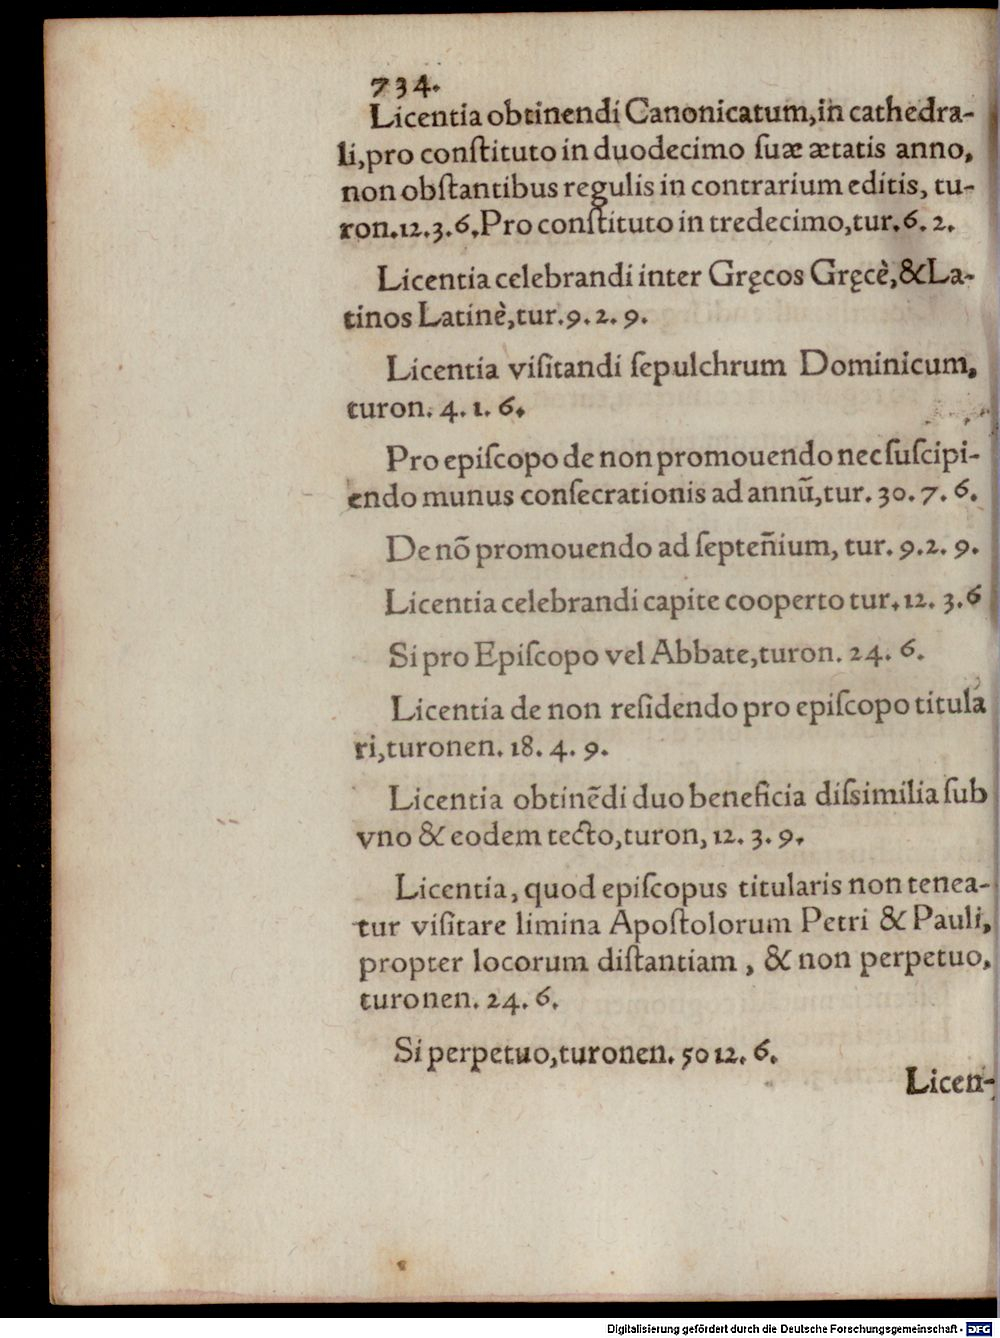 734.
Licentia obtinendi Canonicatum,in cathedra-
li,pro conſtituto in duodecimo ſuæ ætatis anno,
non obſtantibus regulis in contrarium editis, tu-
ron.12.3.6.Pro conſtituto in tredecimo,tur.6. 2.
Licentia celebrandi inter Gręcos Gręcè,&La-
tinos Latinè,tur.9. 2. 9.
Licentia viſitandi ſepulchrum Dominicum,
turon. 4. 1. 6.
Pro epiſcopo de non promouendo nec ſuſcipi-
endo munus conſecrationis ad annū,tur. 30. 7. 6.
De nō promouendo ad ſepten̄ium, tur. 9.2. 9.
Licentia celebrandi capite cooperto tur.12. 3.6
Si pro Epiſcopo vel Abbate,turon. 24. 6.
Licentia de non reſidendo pro epiſcopo titula
ri,turonen. 18. 4. 9.
Licentia obtinēdi duo beneficia diſsimilia ſub
vno & eodem tecto,turon, 12. 3. 9.
Licentia, quod epiſcopus titularis non tenea-
tur viſitare limina Apoſtolorum Petri & Pauli,
propter locorum diſtantiam , & non perpetuo,
turonen. 24. 6.
Si perpetuo,turonen. 50 12. 6.
Licen-
Digitalisierung gefördert durch die Deutsche Forschungsgemeinschaft - DFG